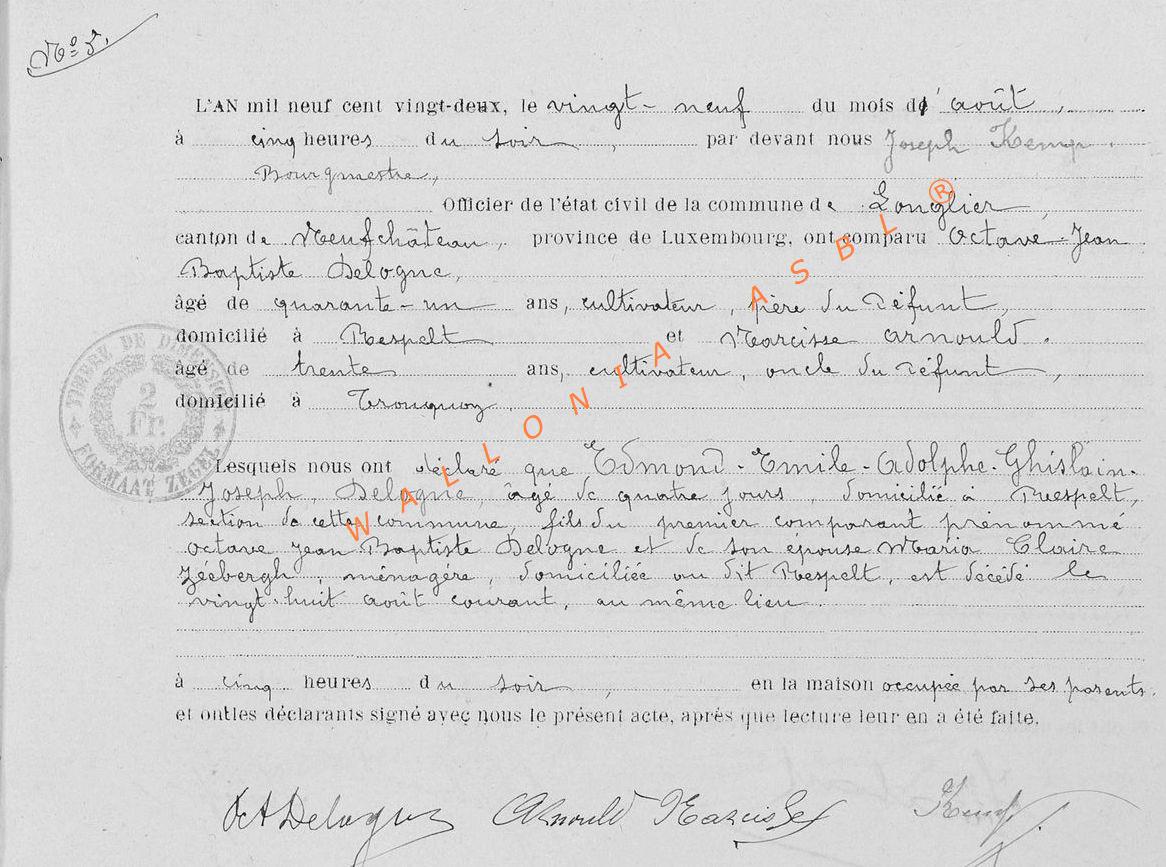 No 5.
L'AN mil neuf cent vingt-deux, le vingt-neuf du mois d' août,
à cinq heures du soir, par devant nous Joseph Kemp.
Bourgmestre,
Officier de l'état civil de la commune de Longlier,
canton de Neufchâteau, province de Luxembourg, ont comparu Octave-Jean
Baptiste Delogne,
âgé de quarante-un ans, cultivateur, père du défunt,
domicilié à Respelt et Narcisse Arnould.
âgé de trente ans, cultivateur, oncle du défunt,
domicilié à Tronquoy.
Lesquels nous ont déclaré que Edmond-Emile-Adolphe-Ghislain-
Joseph, Delogne, âgé de quatre jours, domicilié à Respelt,
section de cette commune, fils du premier comparant prénommé
Octave Jean Baptiste Delogne et de son épouse Maria Claire
, ménagère, domiciliée au dit Respelt, est décédé le
vingt-huit août courant, au même lieu.
à cinq heures du soir, en la maison occupée par ses parents.
et ont les déclarants signé avec nous le présent acte, après que lecture leur en a été faite.
Oct Delogne Arnould Narcisse Kemp
TIMBRE DE DIMENSION
2
Fr.
FORMAAT ZEGEL
WALLONIA ASBL ®